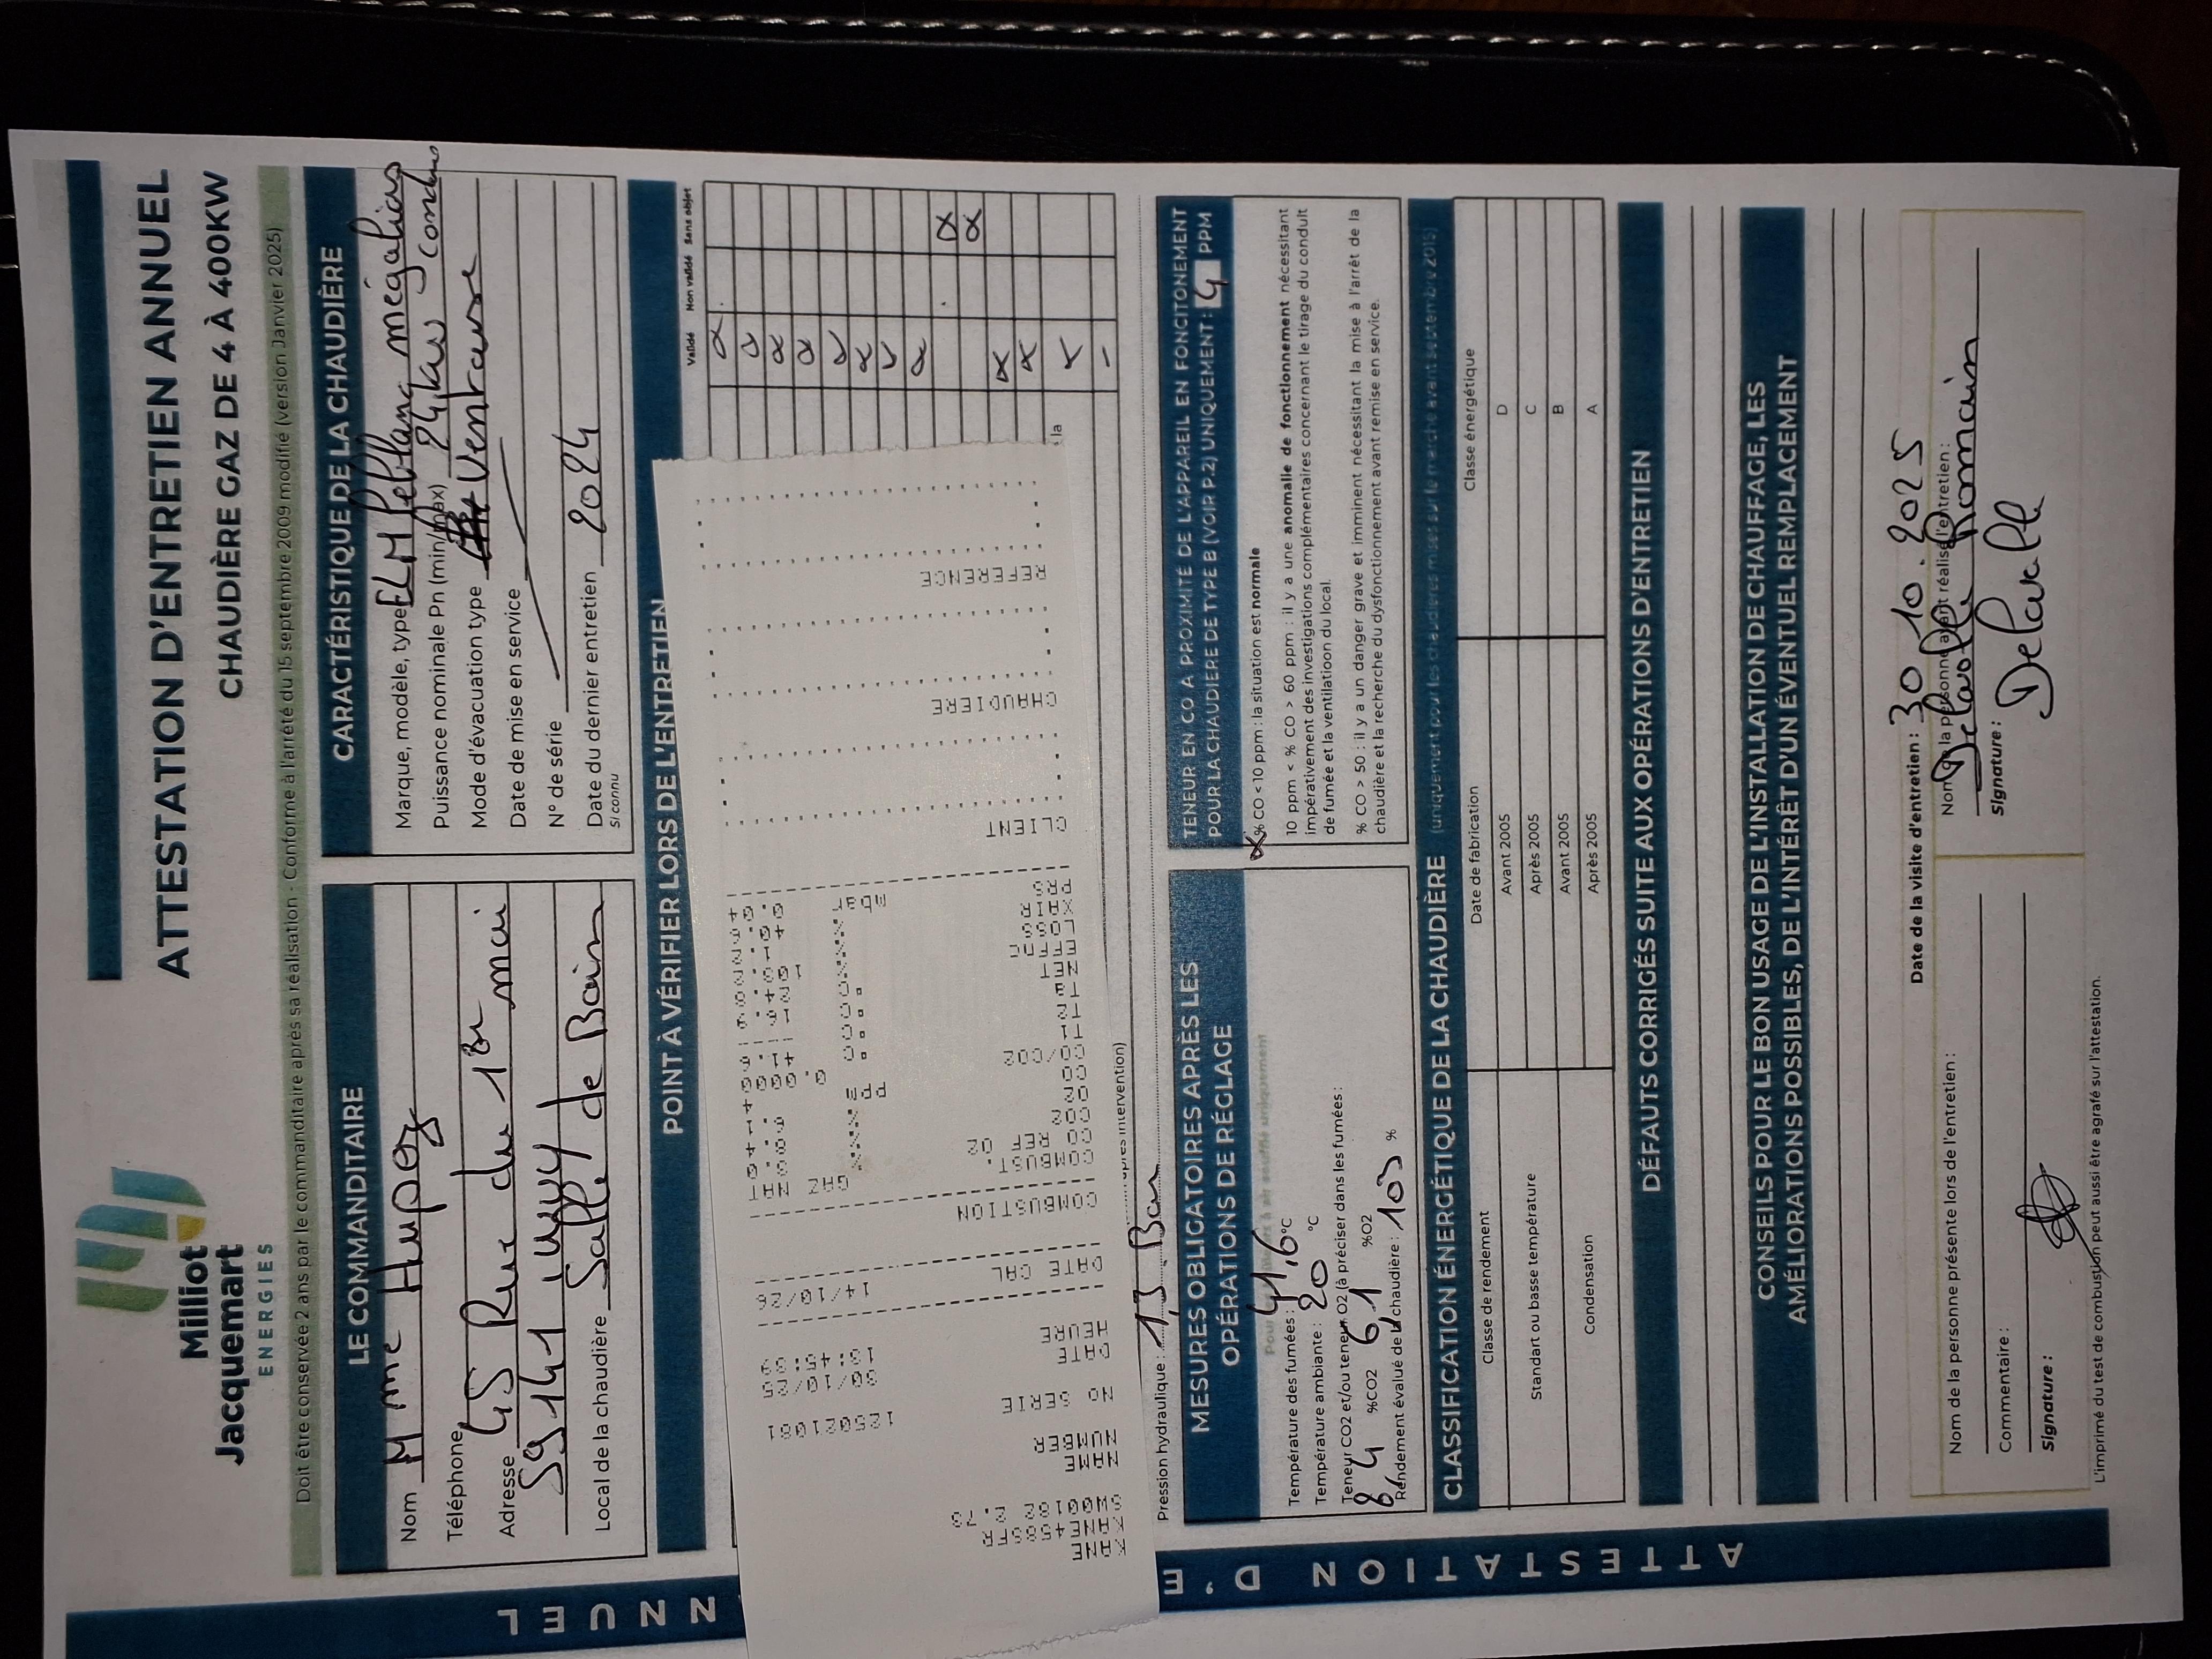 Milliot
Jacquemart
ENERGIES
ATTESTATION D'ENTRETIEN ANNUEL
CHAUDIÈRE GAZ DE 4 À 400KW
Doit être conservée 2 ans par le commanditaire après sa réalisation - Conforme à l'arrêté du 15 septembre 2009 modifié (version Janvier 2025)
LE COMMANDITAIRE
Nom Mme Hupez
Téléphone
Adresse 45 Rue du 1er mai
59141 iwuy
Local de la chaudière Salle de Bain
CARACTÉRISTIQUE DE LA CHAUDIÈRE
Marque, modèle, type ELM leblanc mégalias
Puissance nominale Pn (min/max) 24 kw condens
Mode d'évacuation type Ventouse
Date de mise en service
N° de série
Date du dernier entretien 2024
Si connu
POINT À VÉRIFIER LORS DE L'ENTRETIEN
Validé Non validé Sans objet
la
KANE
KANE458STR
SW00182 2.78
NAME
NUMBER
NO SERIE
125021081
DATE 30/10/25
HEURE
DATE CAL
14/10/26
COMBUSTION
COMBUST.
GAZ NAT
REF O2
CO
CO2
O2
CO/CO2 0.0000
T1
T2
NET
EFFIC
LOSS
XAIR
PRS
mbar
CLIENT
CHAUDIERE
REFERENCE
après intervention)
Pression hydraulique : 1,3 Bar
MESURES OBLIGATOIRES APRÈS LES
OPÉRATIONS DE RÉGLAGE
Température des fumées : 41,6 °C
Température ambiante : 20 °C
Teneur CO2 et/ou teneur O2 (à préciser dans les fumées :
8,4 %CO2 6,1 %O2
Rendement évalué de la chaudière : 103 %
TENEUR EN CO A PROXIMITÉ DE L'APPAREIL EN FONCITONEMENT
POUR LA CHAUDIERE DE TYPE B (VOIR P.2) UNIQUEMENT : 4 PPM
% CO < 10 ppm : la situation est normale
10 ppm < % CO > 60 ppm : il y a une anomalie de fonctionnement nécessitant
impérativement des investigations complémentaires concernant le tirage du conduit
de fumée et la ventilatioon du local.
% CO > 50 : il y a un danger grave et imminent nécessitant la mise à l'arrêt de la
chaudière et la recherche du dysfonctionnement avant remise en service.
CLASSIFICATION ÉNERGÉTIQUE DE LA CHAUDIÈRE (uniquement pour les chaudières mises sur le marché avant septembre 2015)
Classe de rendement Date de fabrication Classe énergétique
Standart ou basse température Avant 2005 D
Après 2005 C
Condensation Avant 2005 B
Après 2005 A
DÉFAUTS CORRIGÉS SUITE AUX OPÉRATIONS D'ENTRETIEN
CONSEILS POUR LE BON USAGE DE L'INSTALLATION DE CHAUFFAGE, LES
AMÉLIORATIONS POSSIBLES, DE L'INTÉRÊT D'UN ÉVENTUEL REMPLACEMENT
Date de la visite d'entretien : 30.10.2025
Nom de la personne présente lors de l'entretien :
Commentaire :
Signature :
Nom de la personne ayant réalisé l'entretien :
Delavalle Romain
Signature :
Delavalle
L'imprimé du test de combustion peut aussi être agrafé sur l'attestation.
ATTESTATION D'E
NNUEL